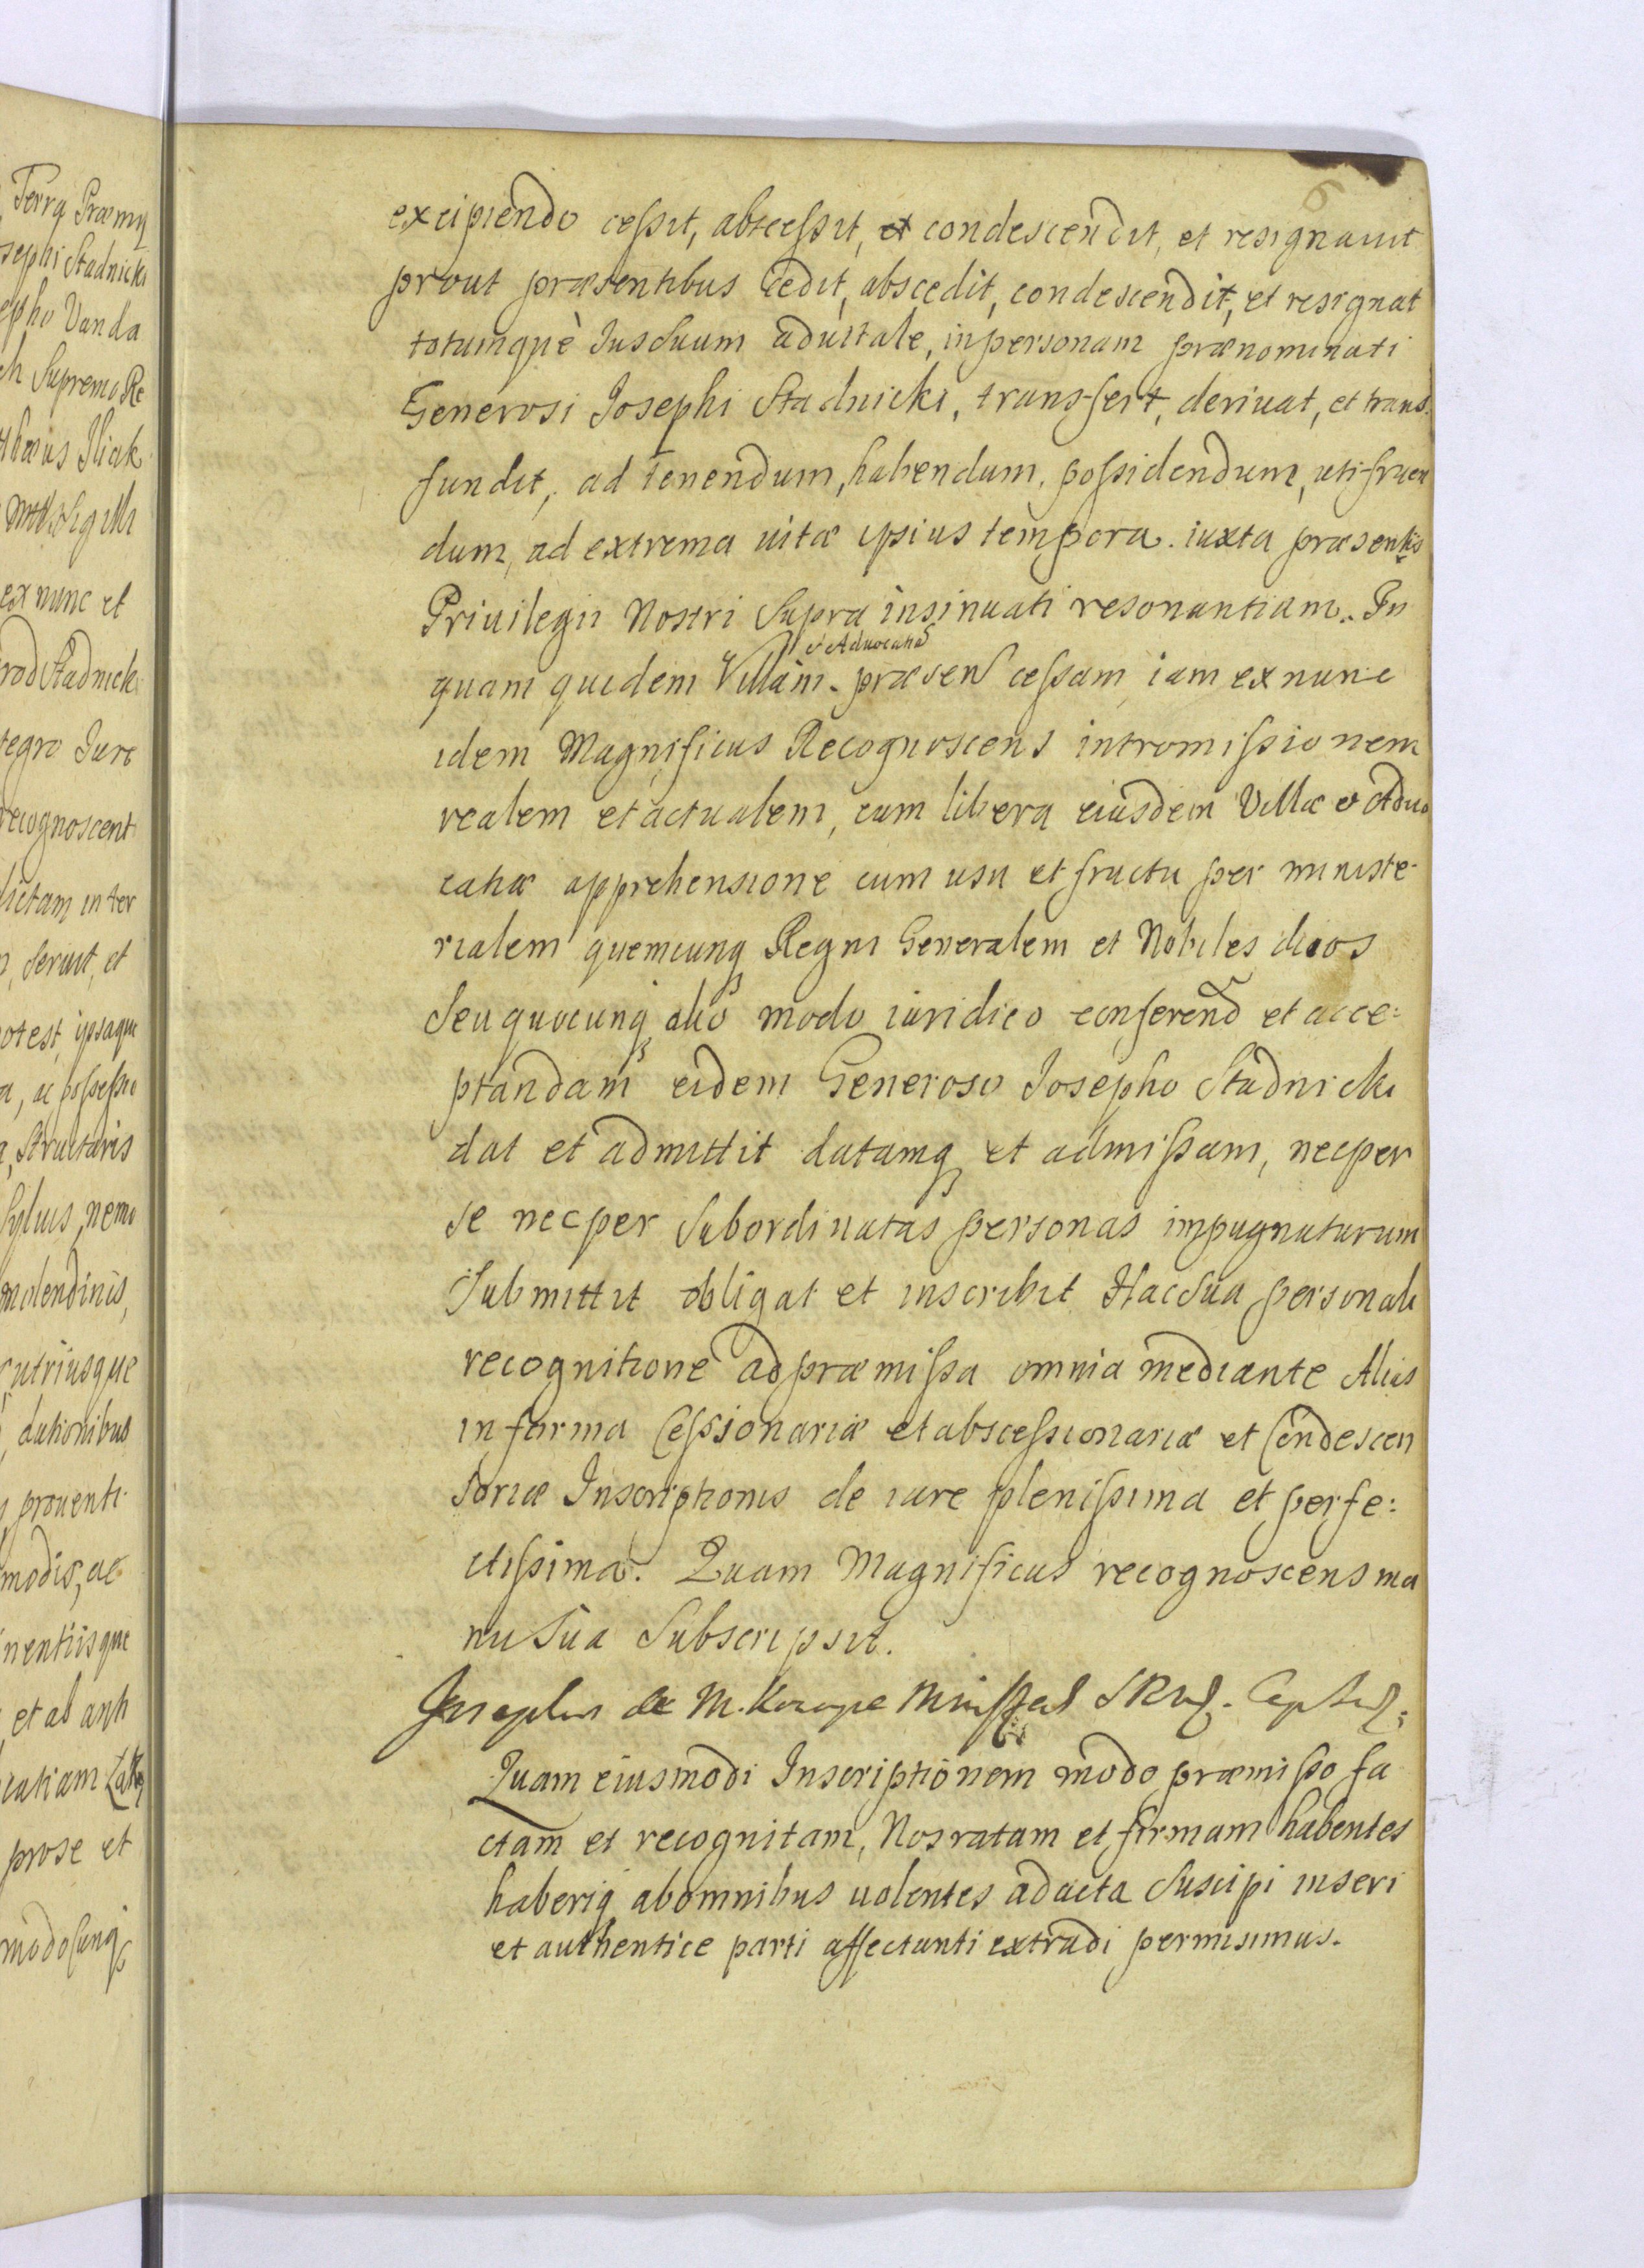 Terrą Præmy
sephi Stadnicki
epho Vanda
ch Supremo Re
ex nunc et
rod Stadnick
tegro Jure
recognoscent
dictam inter
seruit, et
otest, ipsaque
a, ac possessio
a, structuris
syluis, nemo
molendinis,
utriusque
dationibus
prouenti
modis, ac
nentiisque
et ab anti
prose et
modocunq
6
excipiendo cessit, abscessit, et condescendit, et resignauit
prout præsentibus cedit, abscedit, condescendit, et resignat
totumquè Jus Suum aduitale, in personam prænominati
Generosi Josephi Stadnicki, transfert, deriuat, et trans
fundit, ad tenendum, habendum, possidendum, utifruen
dum, ad extrema uitæ ipsius tempora. iuxta præsentis
Priuilegii Nostri Supra insinuati resonantiam. In
& Aduocatia
quam quidem Villam. præsen cessam iam ex nunc
idem Magnificus Recognoscens intromissionem
realem et actualem, cum libera eiusdem Villæ & Aduo
catiæ apprehensione cum usu et fructu per ministe
rialem quemcunq Regni Generalem et Nobiles duos
Seu quocunq alio modo iuridico conferend et acce:
ptandam eidem Generoso Josepho Stadnicki
dat et admittit datamq et admissam, nec per
se nec per Subordinatas personas impugnaturum
Submittit obligat et inscribit Hac Sua personali
recognitione ad præmissa omnia mediante Alias
in forma Cessionariæ et abscessionariæ et Condescen
soriæ Inscriptionis de iure plenissima et perfe:
ctissima. Quam Magnificus recognoscens ma
nu Sua Subscripsit.
Josephus de M.
Quam eiusmodi Inscriptionem modo præmisso fa
ctam et recognitam, Nos ratam et firmam habentes
haberiq ab omnibus uolentes ad acta Suscipi inseri
et authentice parti affectanti extradi permisimus.